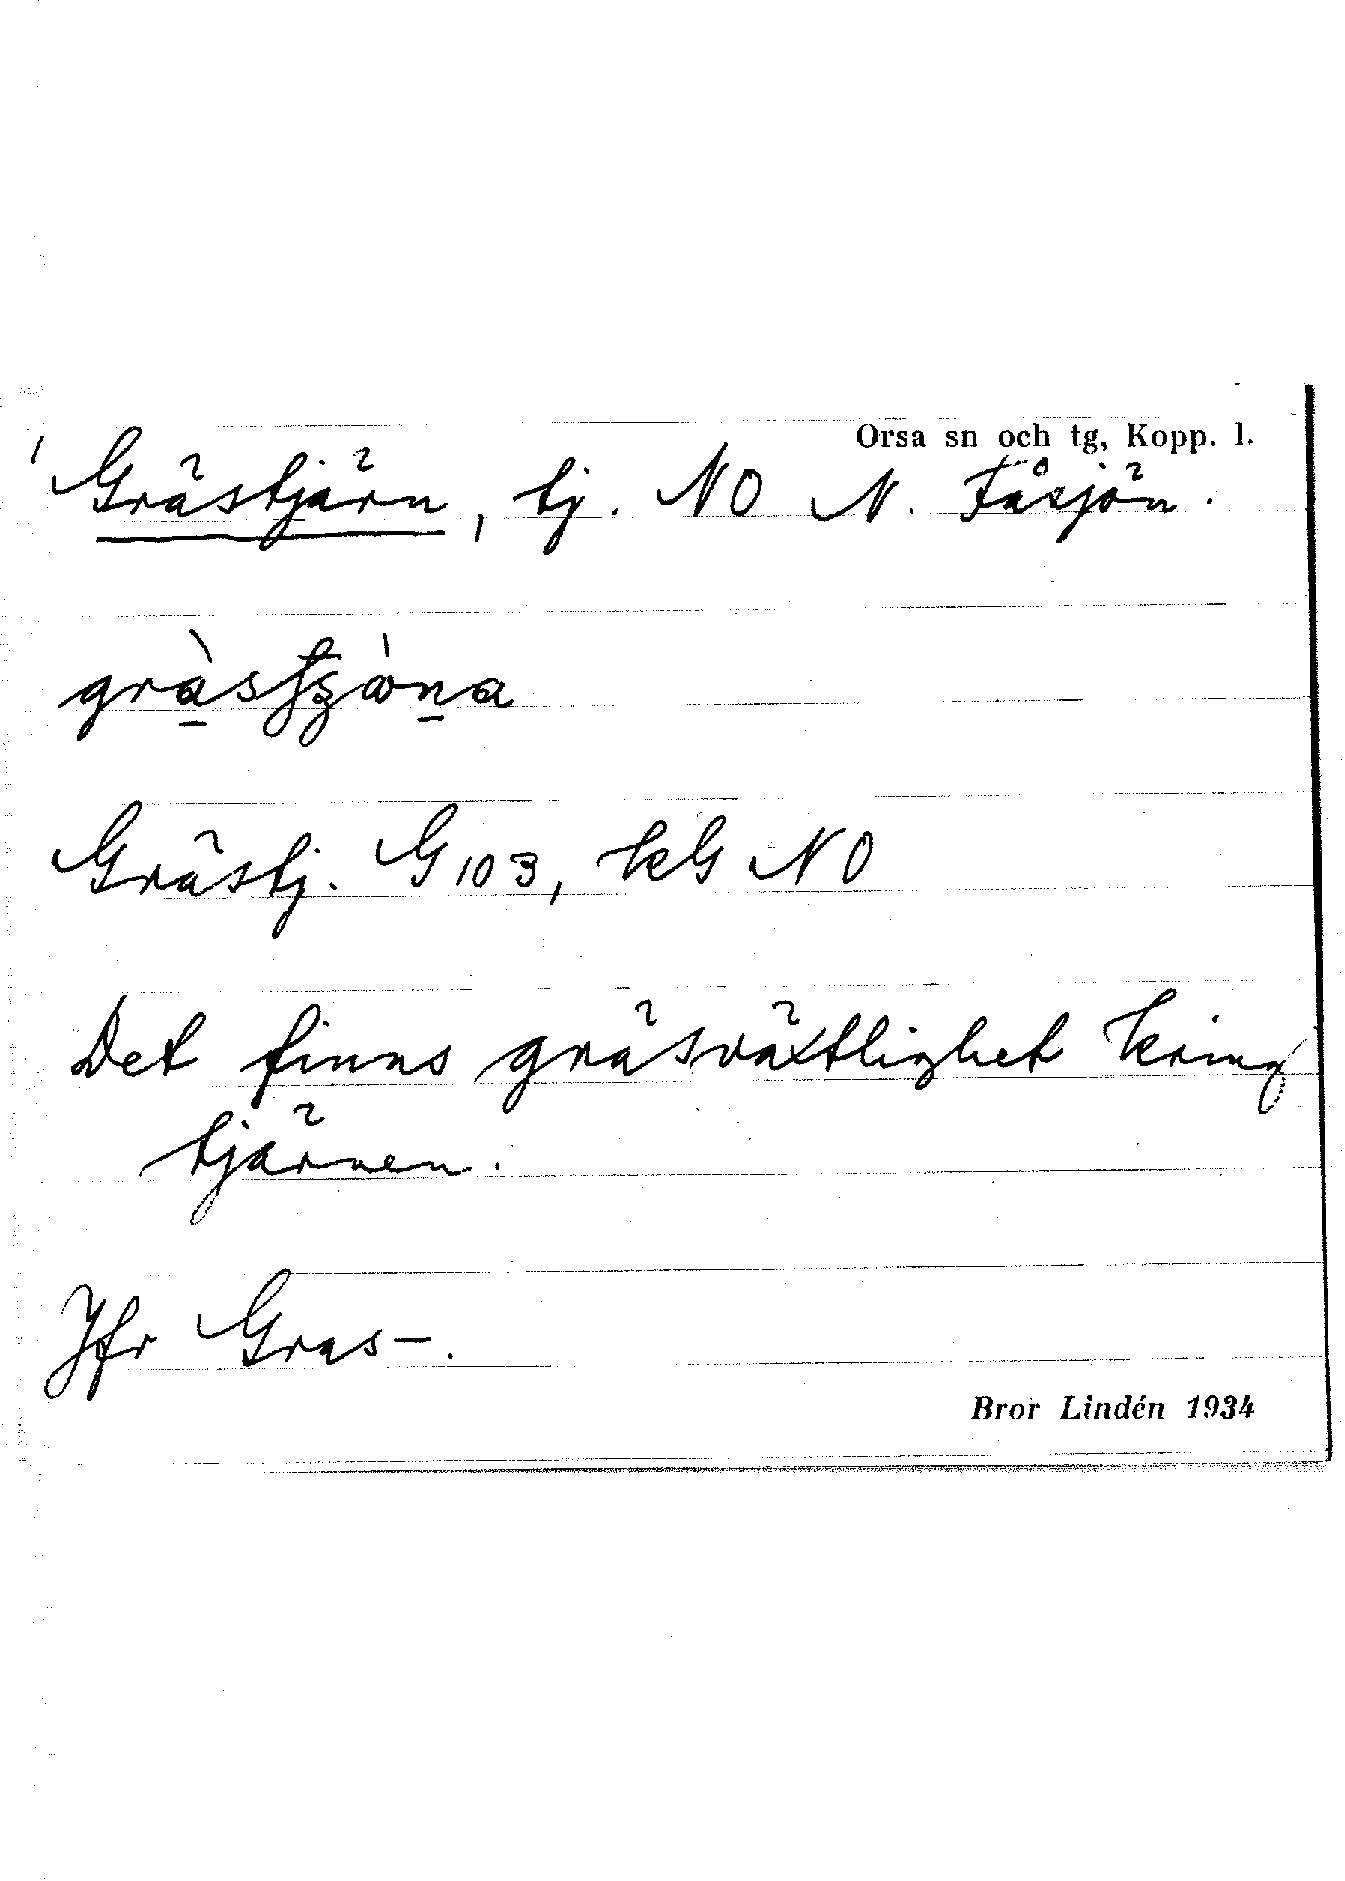 Orsa sn och tg, Kopp. l.
Grästjärn, tj. NO N. Fåsjön.
Grästj. G 103, kG NO
Det finns gräsväxtlighet kring
tjärnen.
Jfr Gras-.
Bror Lindén 1934